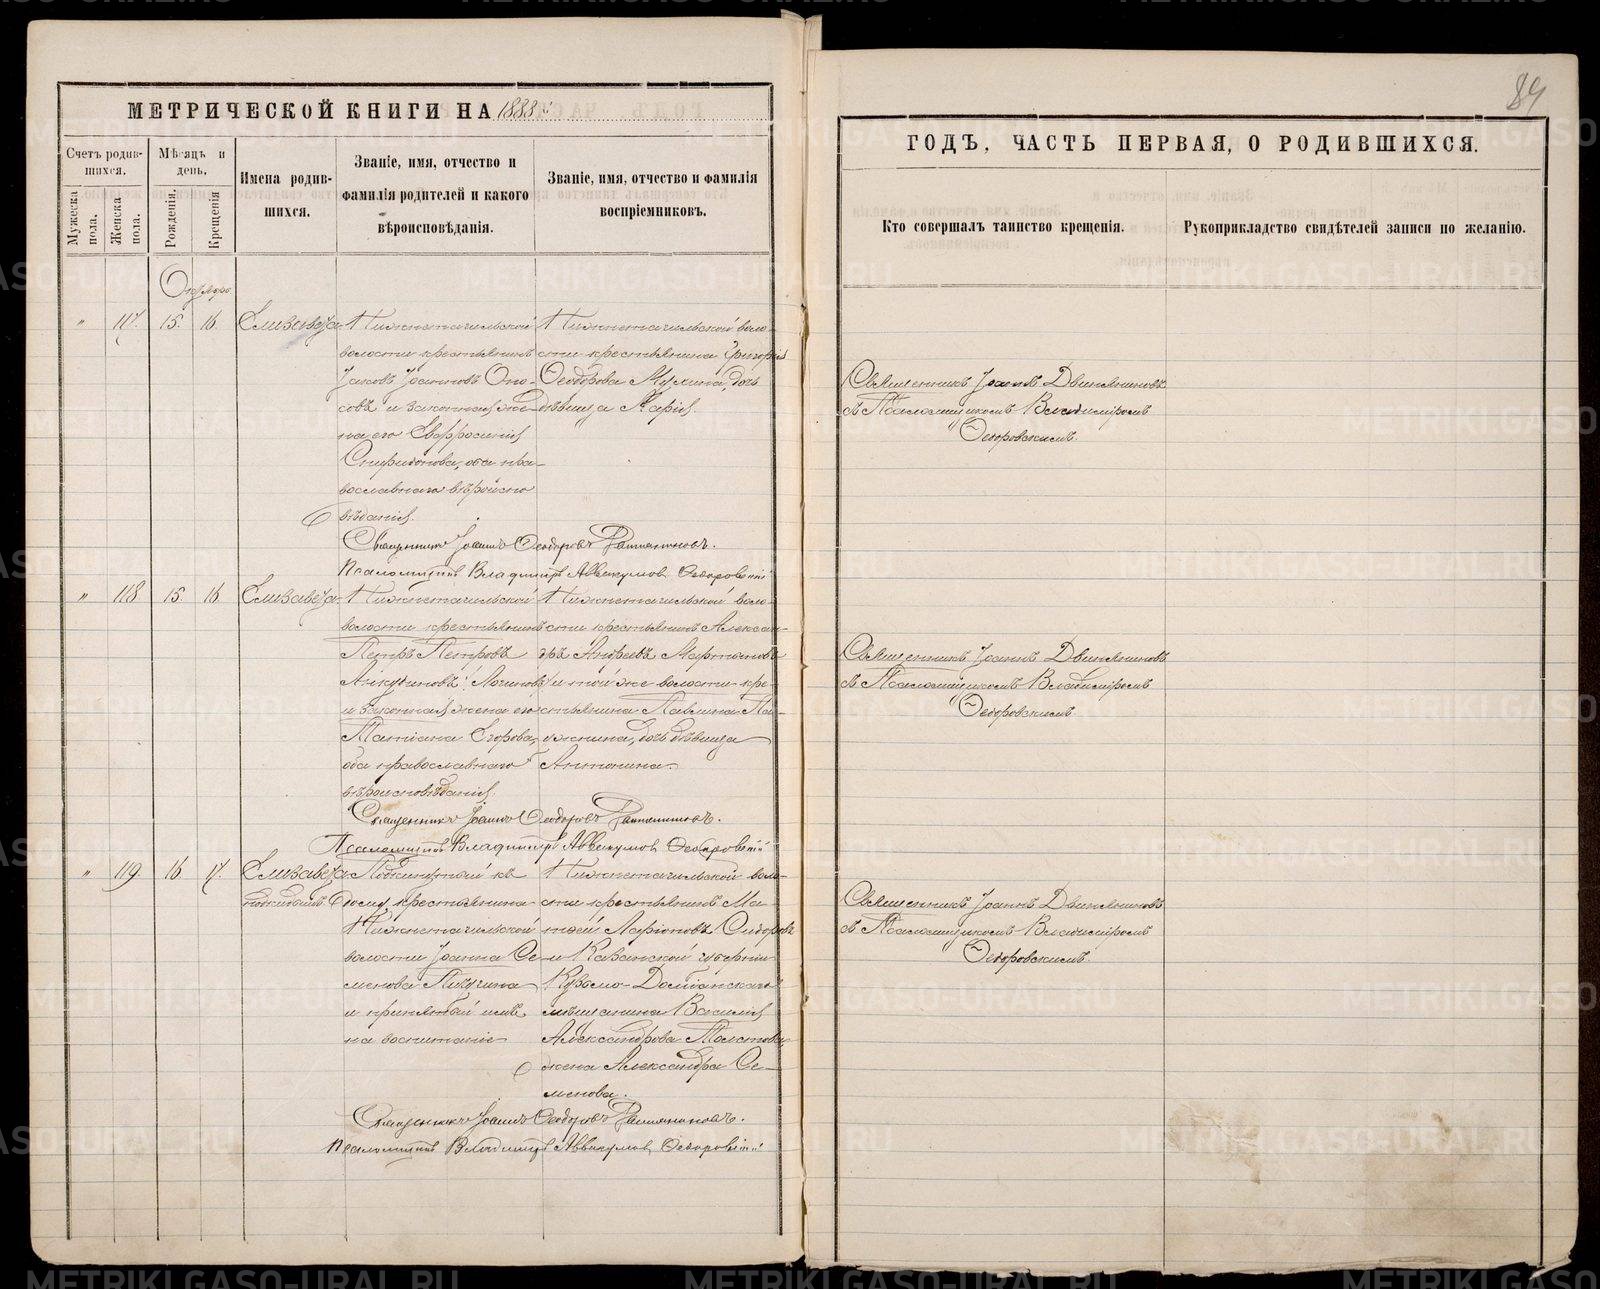 МЕТРИЧЕСКОЙ КНИГИ НА 1888
Счетъ родив-
шихся.
Мужеска
пола.
Женска
пола.
Мѣсяцъ и
день.
Рожденія.
Крещенія
Имена родив-
шихся.
Званіе, имя, отчество и
фамилія родителей и какого
вѣроисповѣданія.
Званіе, имя, отчество и фамилія
воспріемниковъ.
Октябрь.
" 117. 15. 16. Елизавета
Нижнетагильской
волости крестьянинъ
Іаковъ Іоанновъ
и законная же-
на его Евфросинія
Спиридонова, оба пра-
вославнаго вѣроиспо
вѣданія.
Нижнетагильской воло-
сти крестьянина Григорія
Ѳеодорова Мухина, дочь
дѣвица Марія.
Священникъ Іоаннъ Ѳеодоровъ
Псаломщикъ Владиміръ Аввакумов Ѳедоровскій
" 118. 15. 16. Елизавета.
Нижнетагильской
волости крестьянинъ
Петръ Петровъ
и законная жена его
Татіана Егорова,
оба православнаго
вѣроисповѣданія.
Нижнетагильской воло-
сти крестьянинъ Алексан-
дръ Андреевъ Мартьяновъ
и той же волости кре-
стьянина Павлина
дочь дѣвица
Антонина.
Священникъ Іоаннъ Ѳеодоровъ
Псаломщикъ Владиміръ Аввакумов Ѳедоровскій
" 119. 16. 17. Елизавета
Подкидышъ
Подкинутый къ
дому крестьянина
Нижнетагильской
волости Іоанна Се-
менова Пичугина
и принятый имъ
на воспитаніе
Нижнетагильской воло-
сти крестьянинъ Ма-
тѳей Ларіоновъ Сидоровъ
и Казанской губерніи
мѣщанина Василія
Александрова Толстова
жена Александра Се-
менова.
Священникъ Іоаннъ Ѳеодоровъ
Псаломщикъ Владиміръ Аввакумов Ѳедоровскій
84
ГОДЪ, ЧАСТЬ ПЕРВАЯ, О РОДИВШИХСЯ.
Кто совершалъ таинство крещенія.
Рукоприкладство свидѣтелей записи по желанію.
Священникъ Іоаннъ Двиняниновъ
съ Псаломщикомъ Владиміромъ
Ѳедоровскимъ.
Священникъ Іоаннъ Двиняниновъ
съ Псаломщикомъ Владиміромъ
Ѳедоровскимъ
Священникъ Іоаннъ Двиняниновъ
съ Псаломщикомъ Владиміромъ
Ѳедоровскимъ.
METRIKI.GASO-URAL.RU